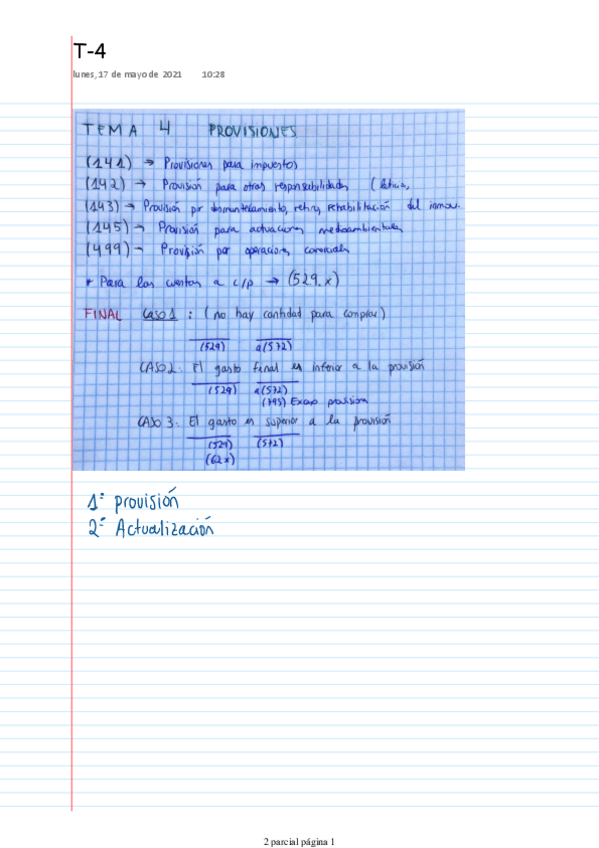 T-4
lunes, 17 de mayo de 2021 10:28
TEMA 4 PROVISIONES
(141) → Provisiones para impuestos
(142) → Provisión para otras responsabilidades (
(143) → Provisión por desmantelamiento, retiro, rehabilitación del inmov.
(145) → Provisión para actuaciones medioambientales
(499) → Provisión por operaciones comerciales
* Para las cuentas a c/p → (529.x)
FINAL Caso 1 : (no hay cantidad para comprar)
(529) a (572)
CASO 2. El gasto final es inferior a la provisión
(529) a (572)
(795) Exceso provisiones
CASO 3. El gasto es superior a la provisión
(529) (572)
(62x)
1º provisión
2º Actualización
2 parcial página 1